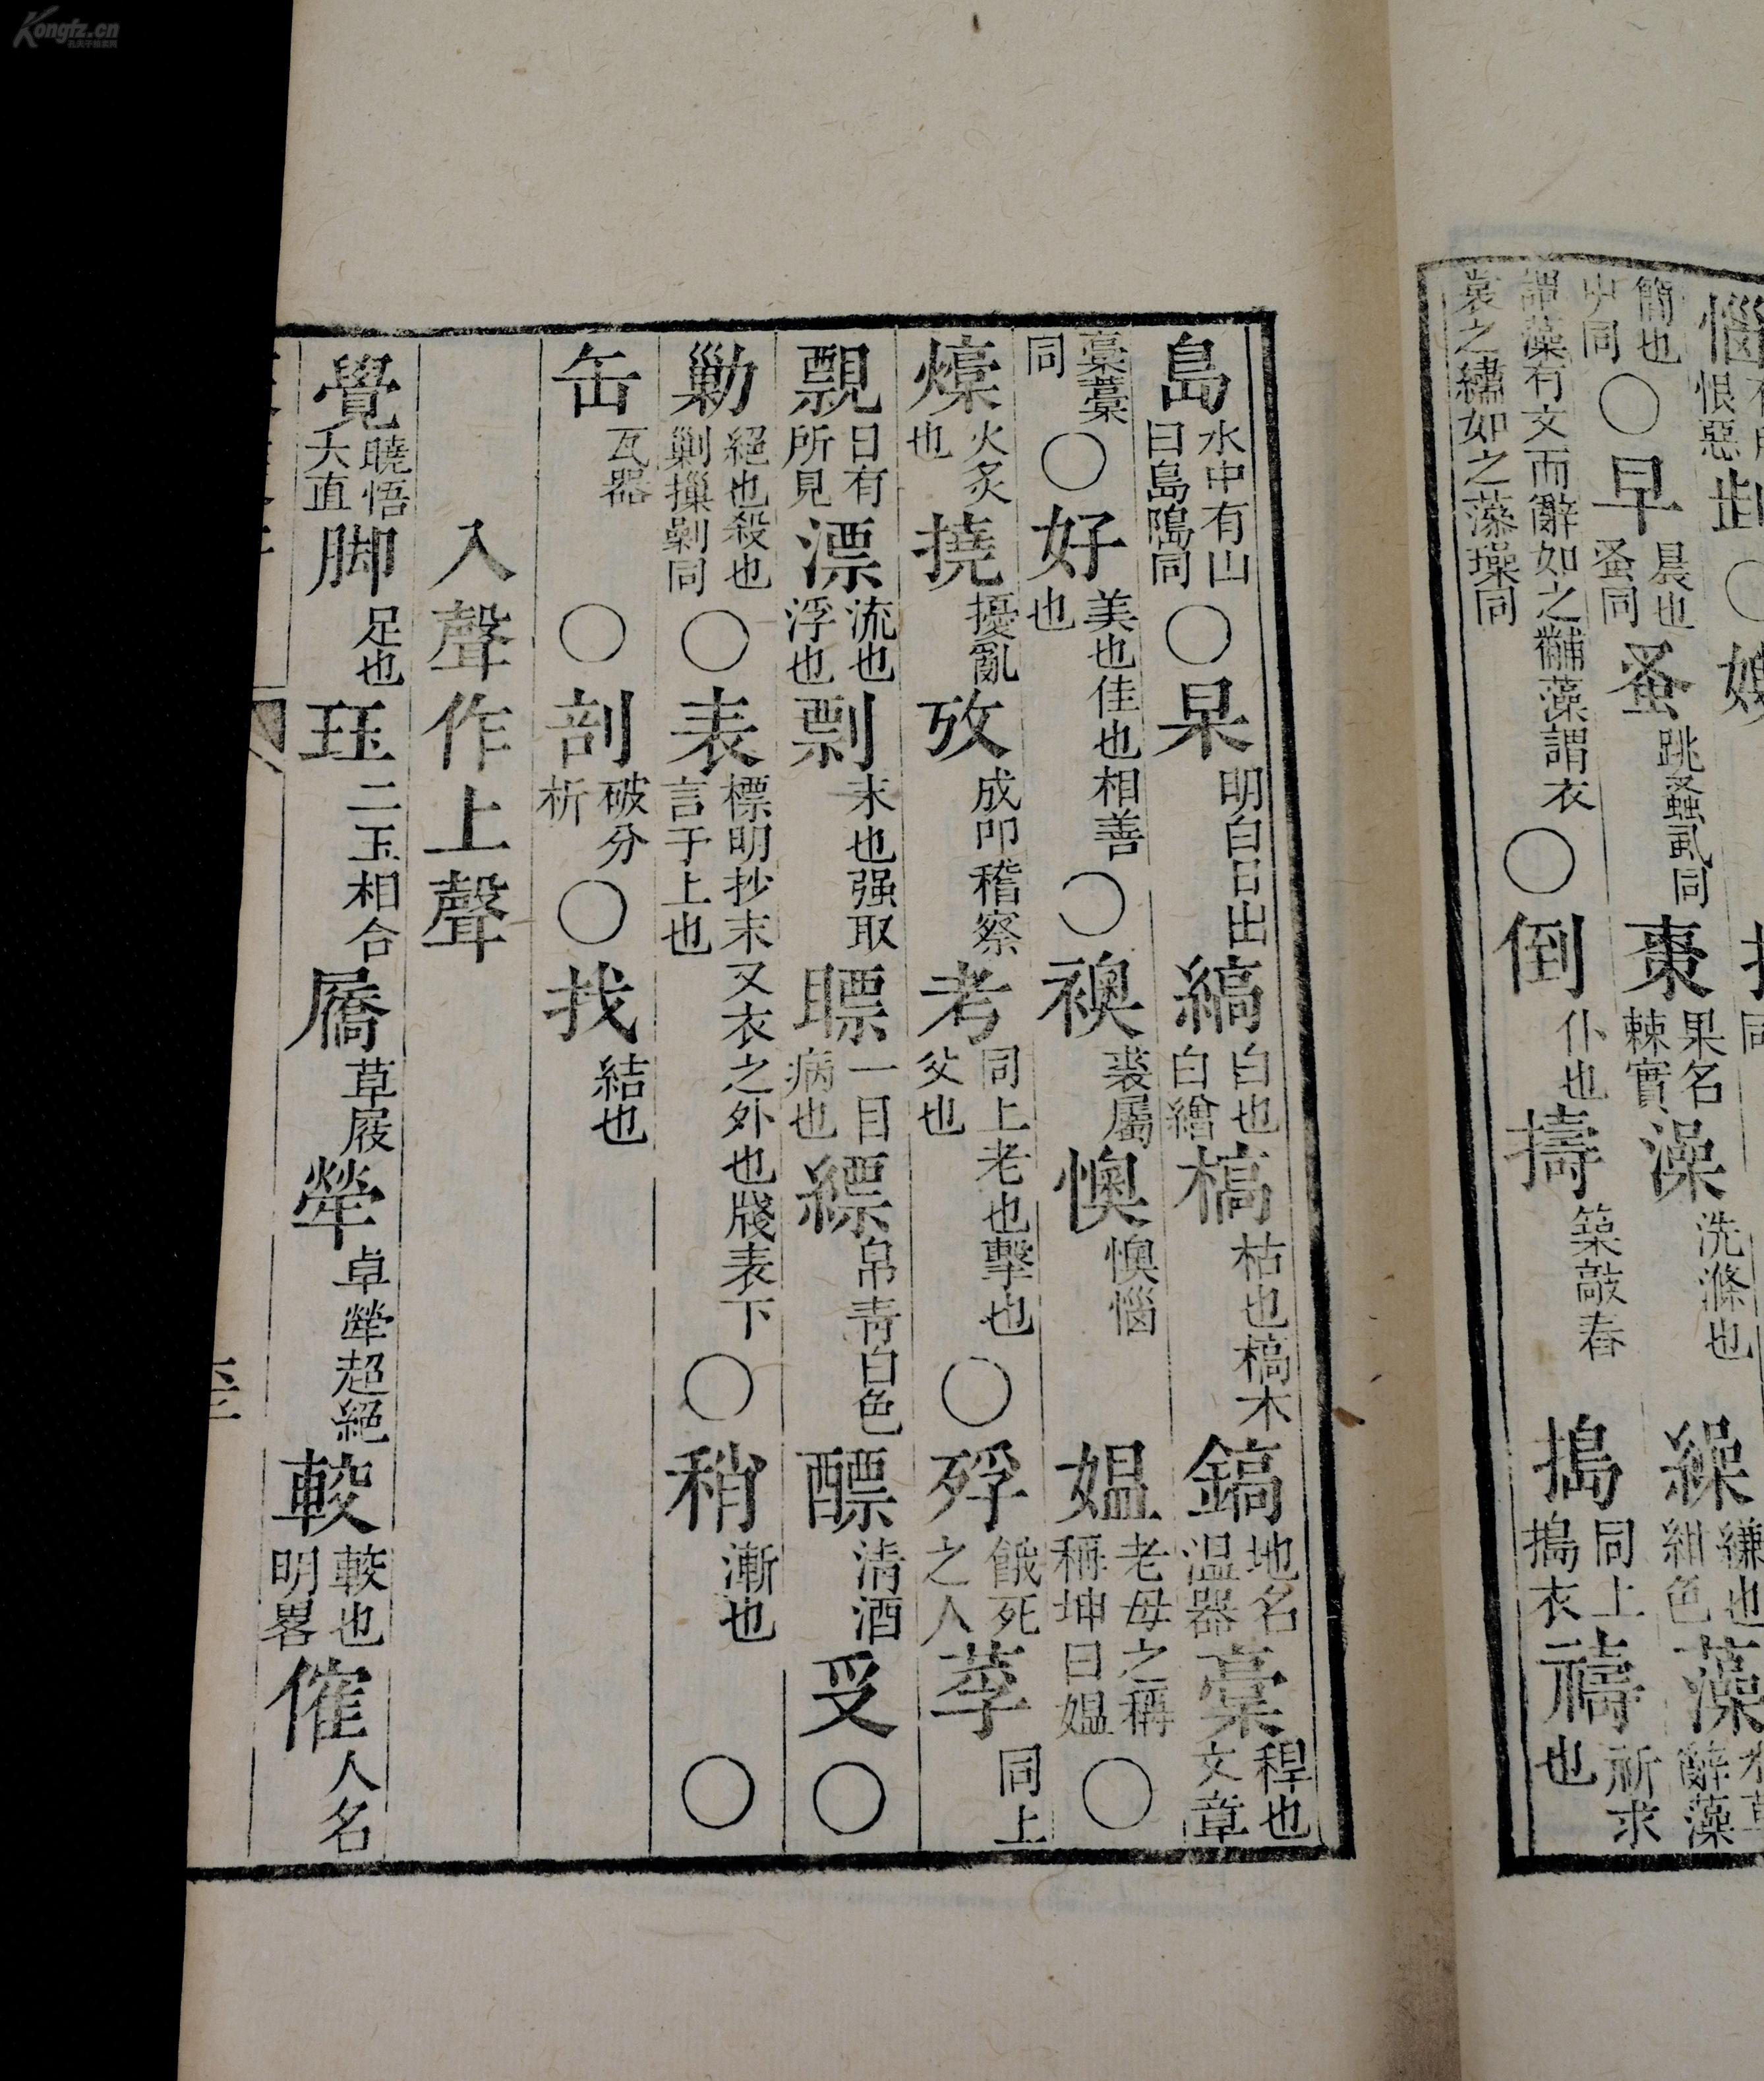 惱
恨惡
簡也
中同
〇早
晨也
蚤同
蚤
跳蟲虱同
棗
果名
棘實
澡
洗滌也
繰
縑也
紺色
藻
辭藻
謂藻有文而辭如之黼藻謂衣
裳之繡如之藻璪同
〇倒
仆也
擣
築敲舂
搗
同上
搗衣
禱
祈求
也
島
水中有山
曰島隝同
〇杲
明白日出
縞
白也
白繒
槁
枯也槁木
鎬
地名
温器
稾
稈也
文章
藁藳
同
〇好
美也佳也相善
也
〇襖
裘屬
懊
懊惱
媼
老母之稱
稱坤曰媼
〇
燺
火炙
也
撓
擾亂
攷
成叩稽察
考
同上老也擊也
父也
〇殍
餓死
之人
莩
同上
覭
日有
所見
漂
流也
浮也
剽
末也强取
瞟
一目
病也
縹
帛靑白色
醥
清酒
受〇
勦
絕也殺也
剿摷剿同
〇表
標明抄末又衣之外也牋表下
言于上也
〇稍
漸也
〇
缶
瓦器
〇剖
破分
析
〇找
結也
入聲作上聲
覺
曉悟
大直
脚
足也
珏
二玉相合
屩
草屐
犖
卓犖超絕
較
較也
明畧
傕
人名
Kongfz.cn